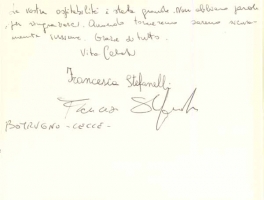 la vostra ospitalità è stata grande. Non abbiamo parole
per ringraziarvi. Quando torneremo saremo sicura-
mente insieme. Grazie di tutto.
Vito
Francesca Stefanelli
BOTRUGNO - LECCE -